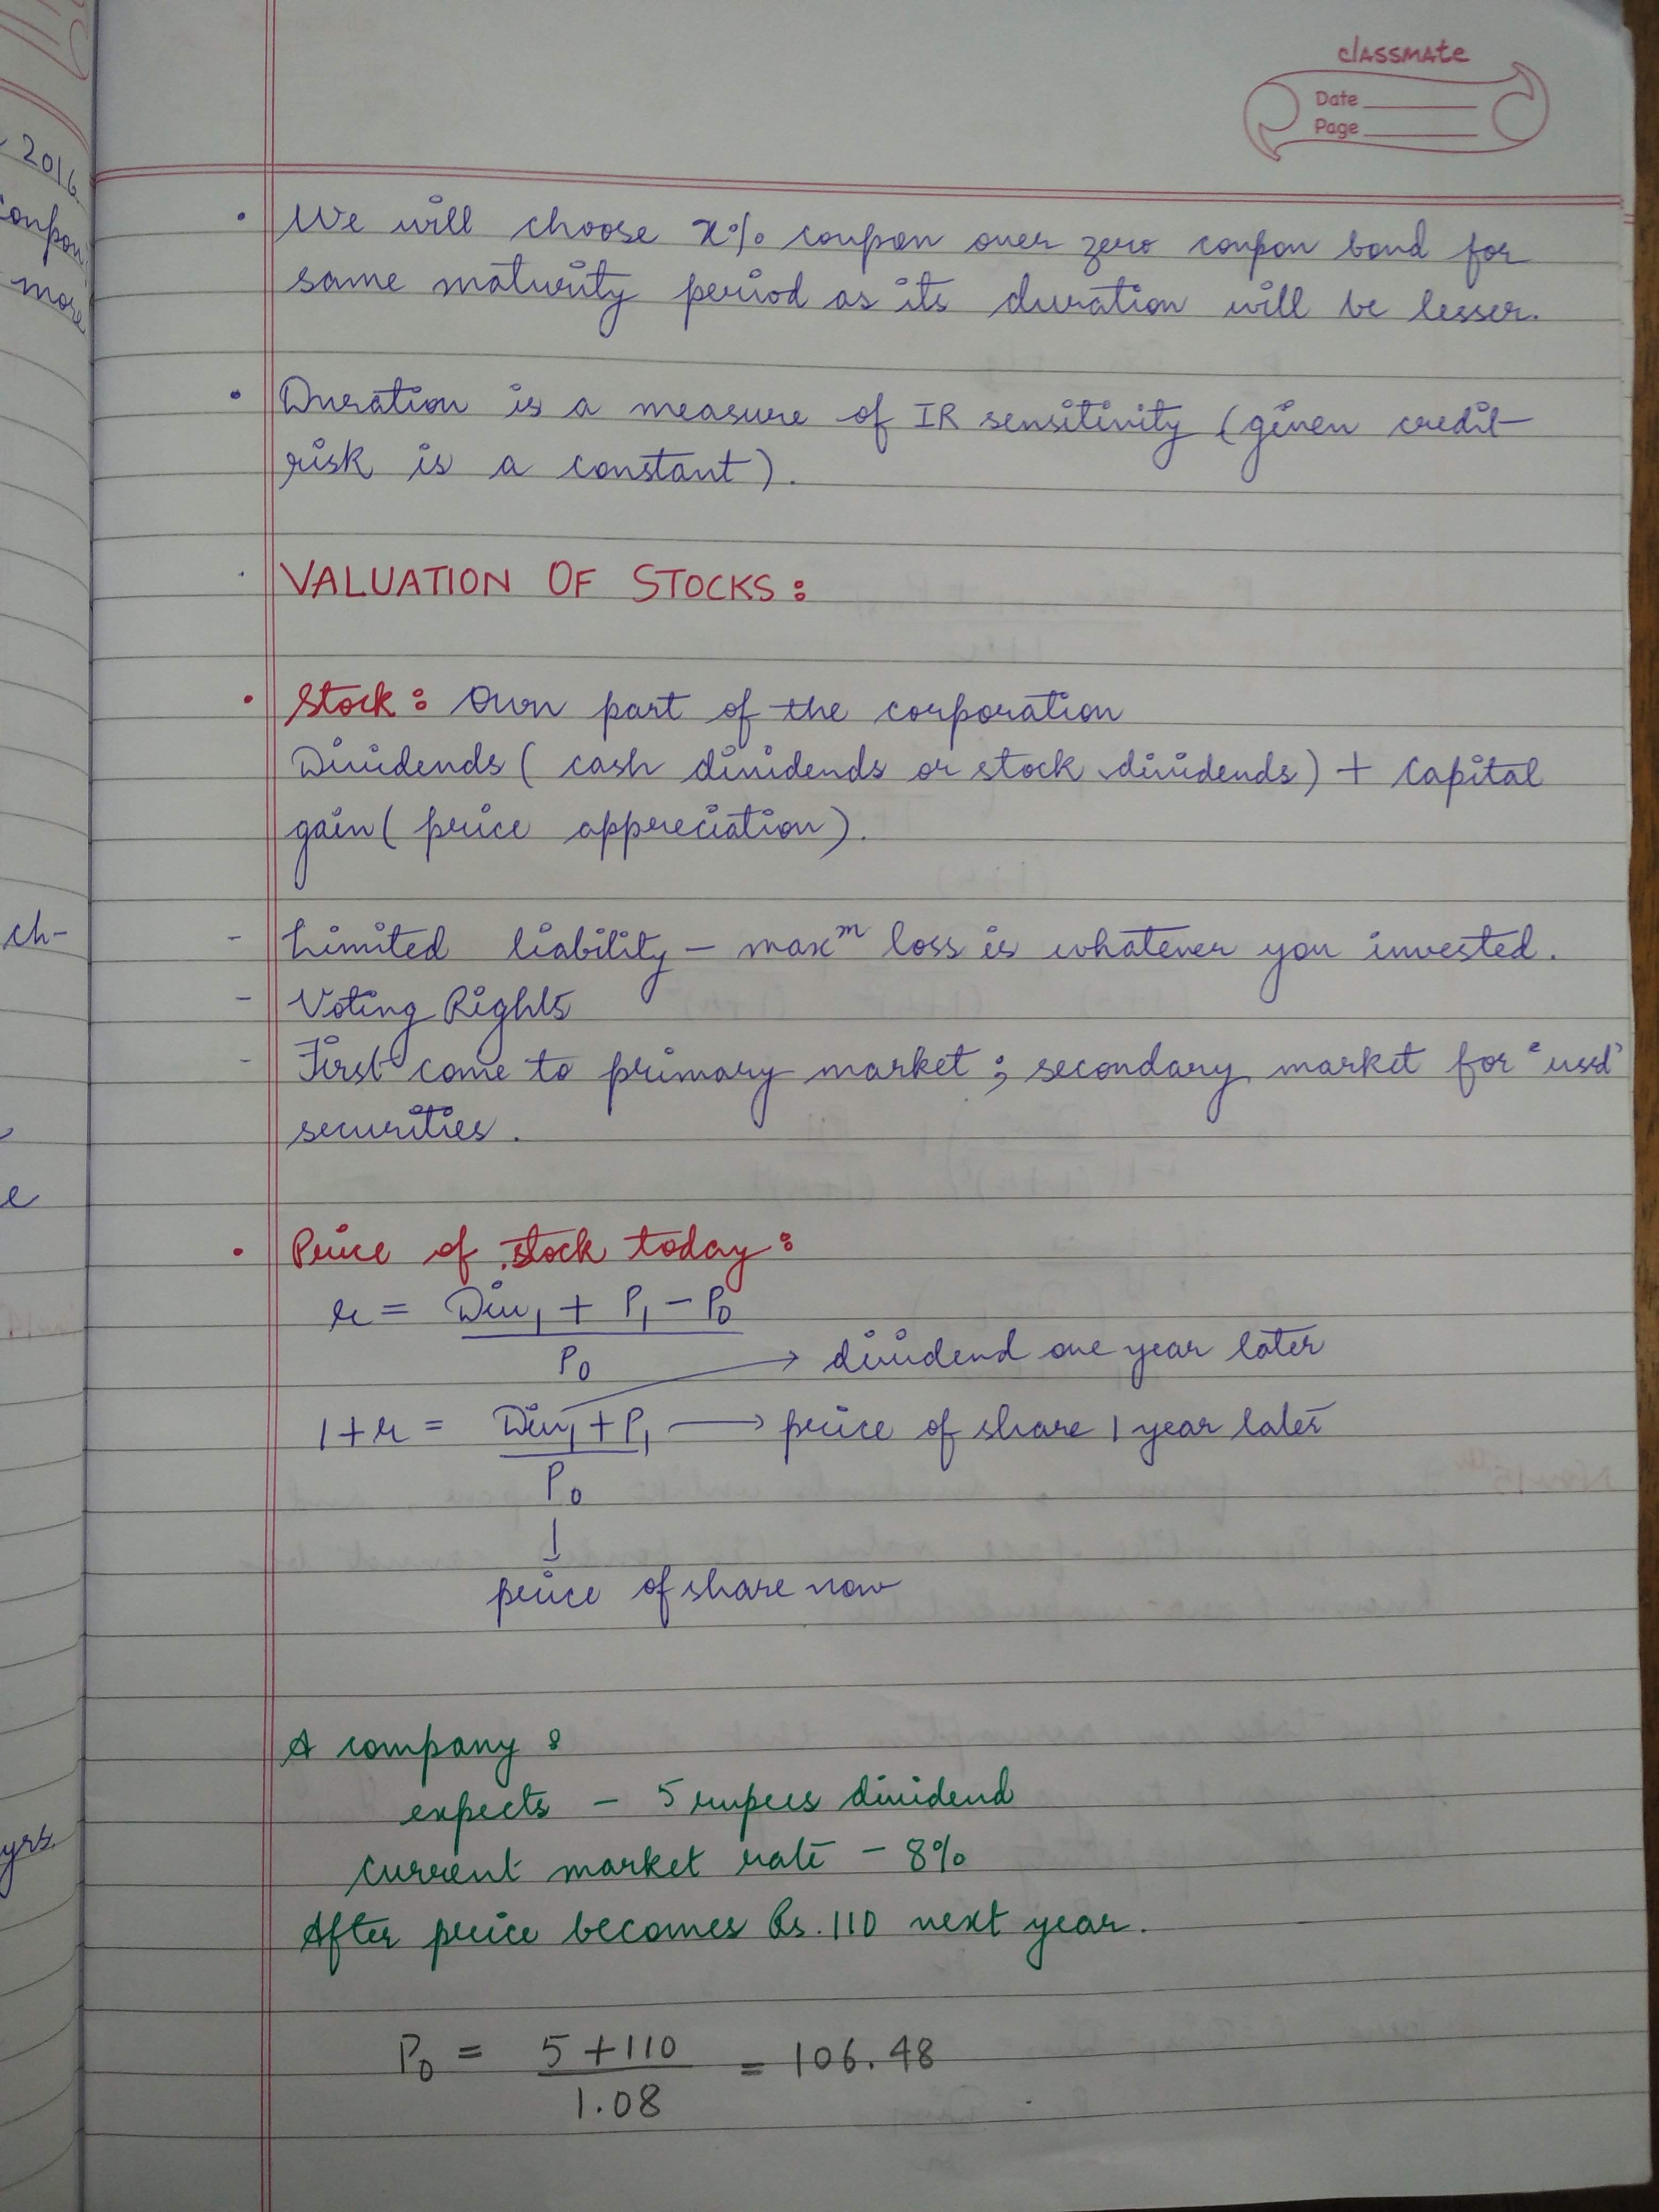 classmate
Date
Page
2016
more
• We will choose x% coupon over zero coupon bond for
same maturity period as its duration will be lesser.
• Duration is a measure of IR sensitivity (given credit
risk is a constant).
• VALUATION OF STOCKS:
• Stock: Own part of the corporation
Dividends (cash dividends or stock dividends) + Capital
gain (price appreciation).
ch-
- Limited liability – maxᵐ loss is whatever you invested.
- Voting Rights
- First come to primary market; secondary market for "used"
securities.
e
• Price of stock today:
r = Div₁ + P₁ - P₀
P₀
→ dividend one year later
1+r = Div₁ + P₁ → price of share 1 year later
P₀
↓
price of share now
A company:
expects – 5 rupees dividend
yrs.
current market rate – 8%
After price becomes Rs. 110 next year.
P₀ = 5+110 = 106.48
1.08